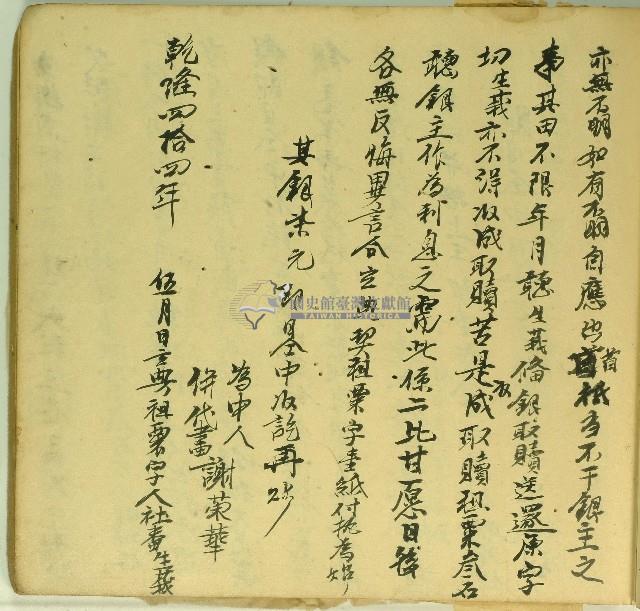 亦無不明如有不明自應出首抵為不干銀主之
事其田不限年月聽生義備銀取贖送還原字
切生義亦不得收成取贖若是收成取贖租粟叁石
聽銀主作為利息之需此係二比甘愿日後
各無反悔異言合立典契租粟字壹紙付執為炤
其銀柒元即日仝中收訖再炤
為中人
併代書謝榮華
乾隆四拾四年 伍月日立典租粟字人社番生義
國史館臺灣文獻館
TAIWAN HISTORICA